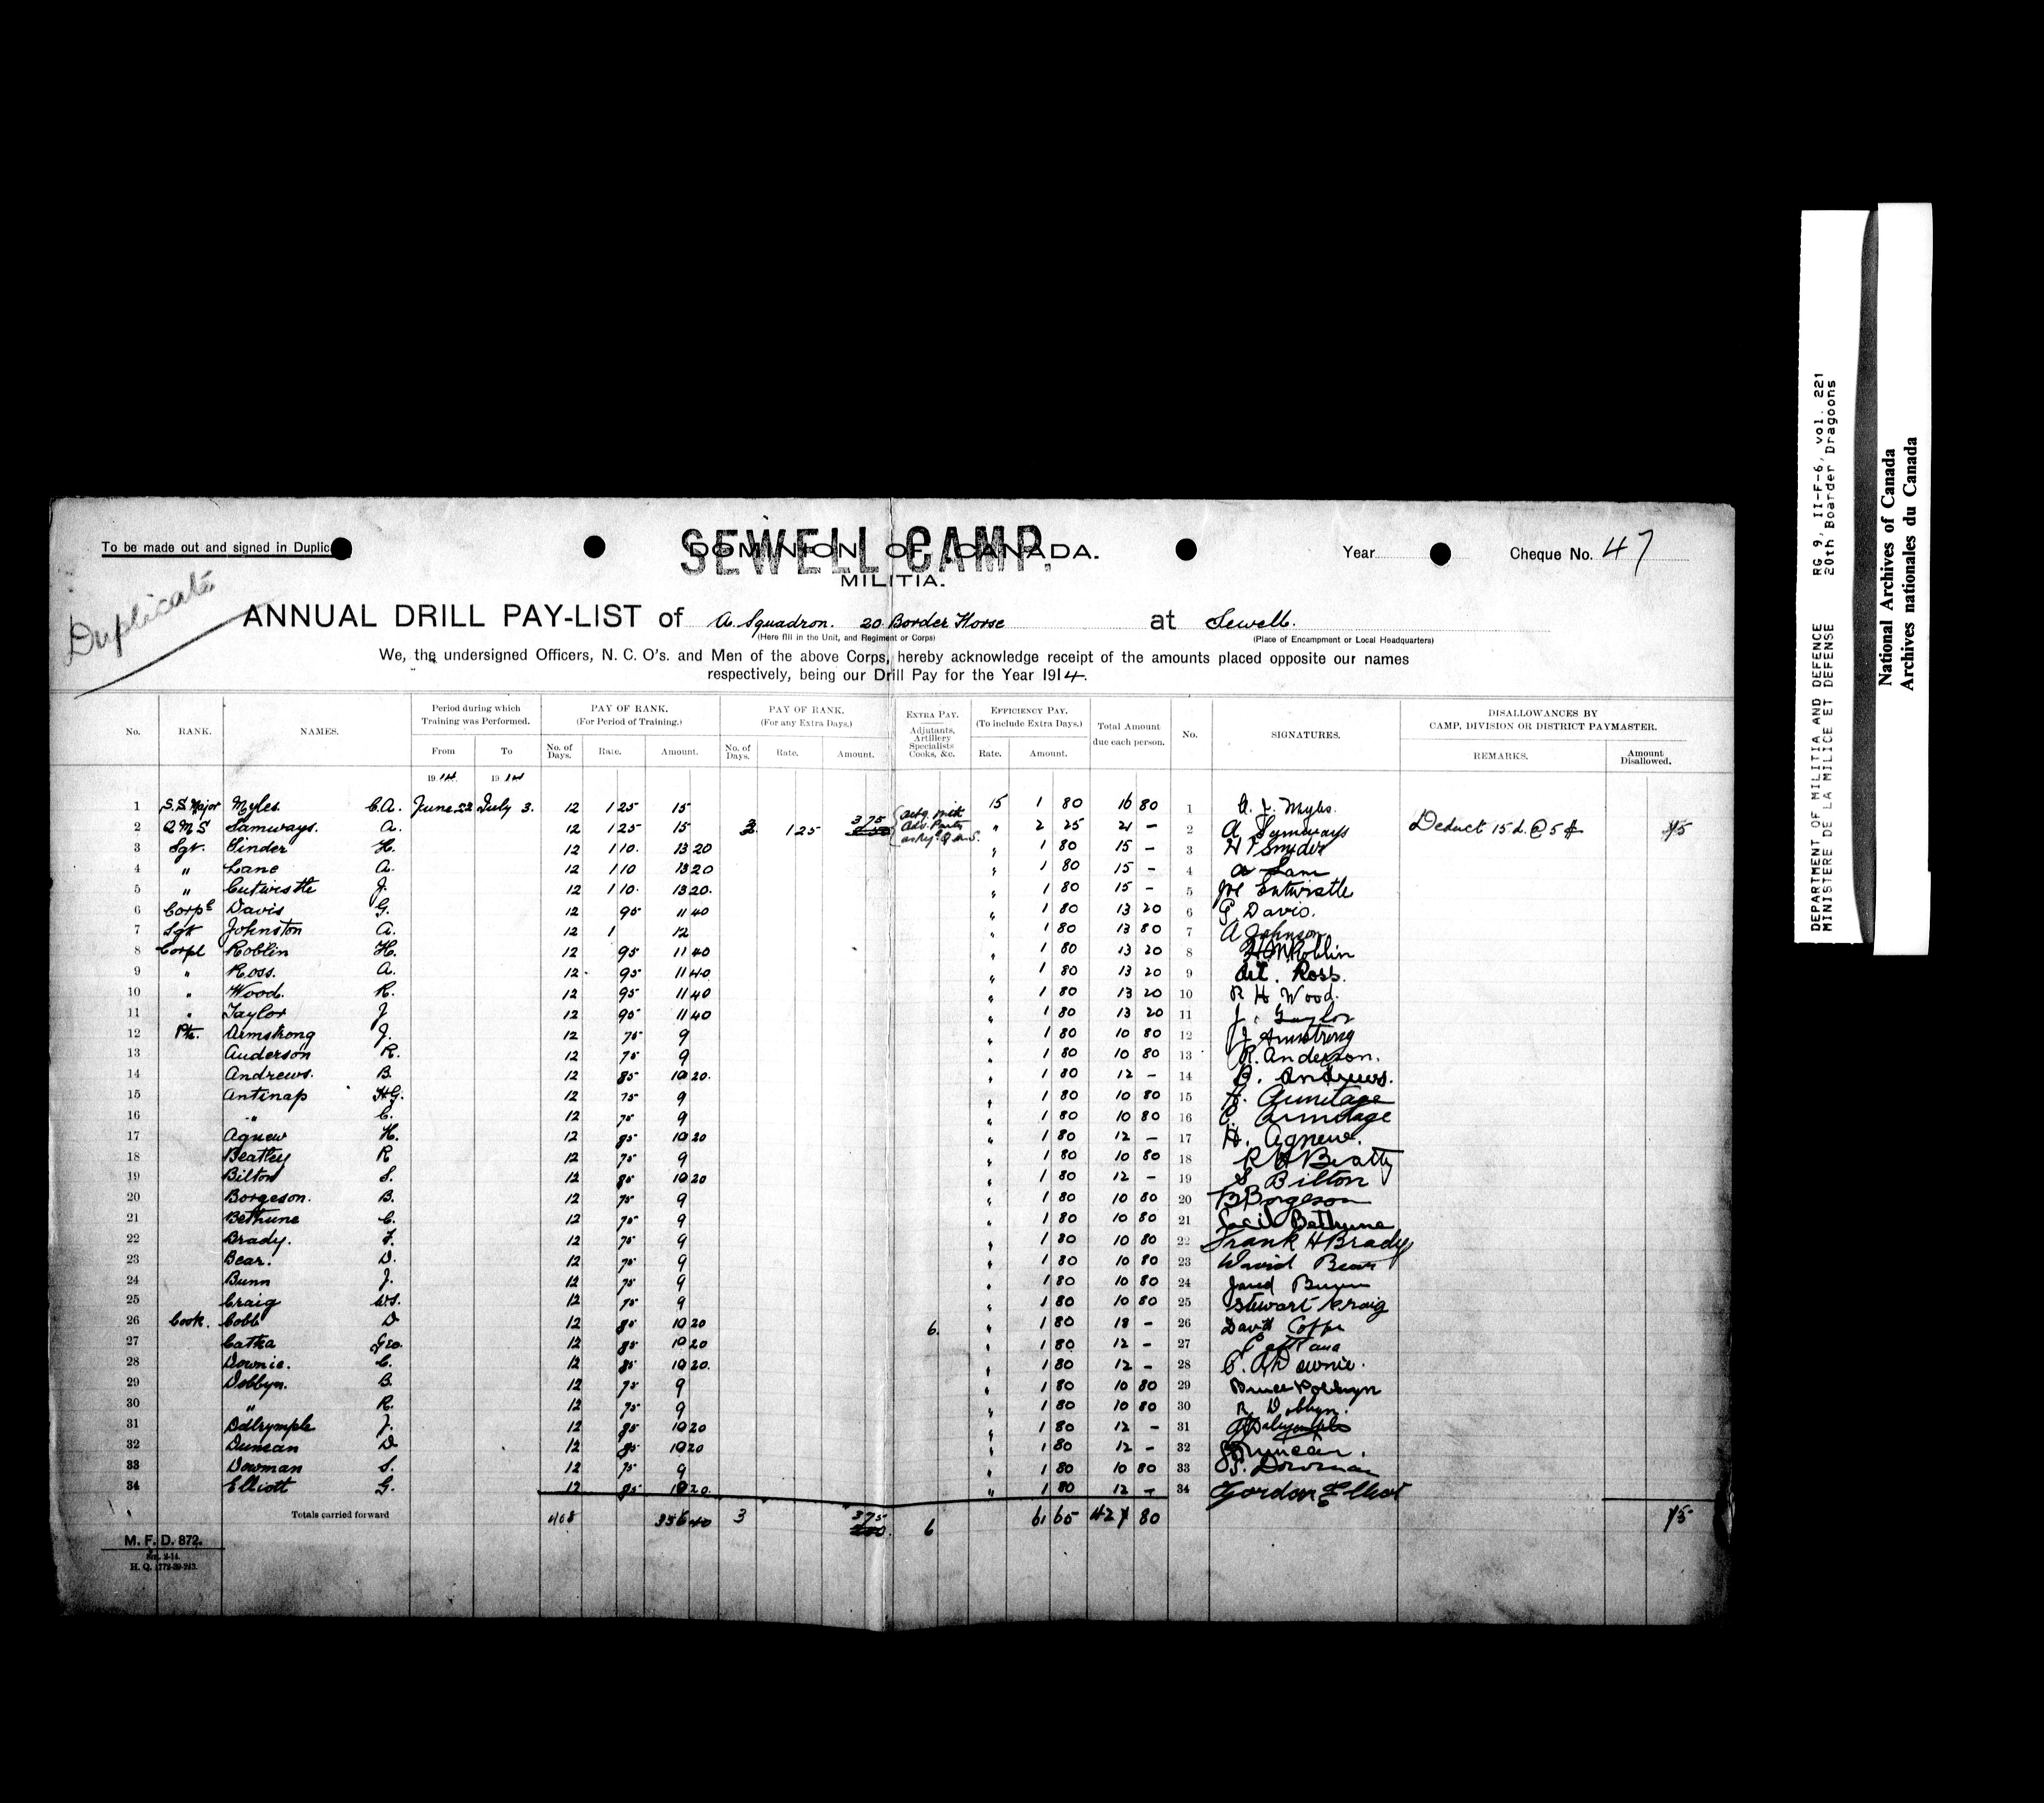 SEWELL CAMP.
To be made out and signed in Duplic
DOMINION OF CANADA.
Year
Cheque No. 47
MILITIA.
Duplicate
ANNUAL DRILL PAY-LIST of A. Squadron. 20 Border Horse at Sewell.
(Here fill in the Unit, and Regiment or Corps)
(Place of Encampment or Local Headquarters)
We, the undersigned Officers, N. C. O's. and Men of the above Corps, hereby acknowledge receipt of the amounts placed opposite our names
respectively, being our Drill Pay for the Year 1914.
No. RANK. NAMES. Period during which Training was Performed. From To PAY OF RANK. (For Period of Training.) No. of Days. Rate. Amount. PAY OF RANK. (For any Extra Days.) No. of Days. Rate. Amount. EXTRA PAY. Adjutants, Artillery Specialists Cooks, &c. EFFICIENCY PAY. (To include Extra Days.) Rate. Amount. Total Amount due each person. No. SIGNATURES. DISALLOWANCES BY CAMP, DIVISION OR DISTRICT PAYMASTER. REMARKS. Amount Disallowed.
1914 1914
1 S.S. Major Myles. C.A. June 22 July 3. 12 1 25 15 15 1 80 16 80 1 Myles.
2 QMS Samways. A. 12 1 25 15 3 1 25 3 75 " 2 25 21 - 2 A Samways Deduct 15 d. @ 5 ¢ 75
3 Sgt. Sinder H. 12 1 10. 13 20 " 1 80 15 - 3 H Snyder
4 " Lane A. 12 1 10 13 20 " 1 80 15 - 4 A Lane
5 " Cutwistle J. 12 1 10. 13 20. " 1 80 15 - 5 Joe Entwistle
6 Corpl Davis G. 12 95 11 40 " 1 80 13 20 6 G. Davis.
7 Sgt Johnston A. 12 1 12 " 1 80 13 80 7 A Johnson
8 Corpl Roblin H. 12 95 11 40 " 1 80 13 20 8 Roblin
9 " Ross. A. 12 95 11 40 " 1 80 13 20 9 Ross.
10 " Wood. R. 12 95 11 40 " 1 80 13 20 10 R H Wood.
11 " Taylor J 12 95 11 40 " 1 80 13 20 11 J. Taylor
12 Pte. Armstrong J. 12 75 9 " 1 80 10 80 12 J Armstrong
13 Anderson R. 12 75 9 " 1 80 10 80 13 R. Anderson.
14 Andrews. B. 12 85 10 20. " 1 80 12 - 14 B. Andrews.
15 Antinap H.G. 12 75 9 " 1 80 10 80 15 H. Armitage
16 " C. 12 75 9 " 1 80 10 80 16 C. Armitage
17 Agnew H. 12 85 10 20 " 1 80 12 - 17 H. Agnew.
18 Beatley R 12 75 9 " 1 80 10 80 18 R H Beatty
19 Bilton S. 12 85 10 20 " 1 80 12 - 19 S Bilton
20 Borgeson. B. 12 75 9 " 1 80 10 80 20 B Borgeson
21 Bethune C. 12 75 9 " 1 80 10 80 21 Cecil Bethune
22 Brady. F. 12 75 9 " 1 80 10 80 22 Frank H Brady
23 Bear. D. 12 75 9 " 1 80 10 80 23 David Bear
24 Bunn J. 12 75 9 " 1 80 10 80 24 Jared Bunn
25 Craig W.S. 12 75 9 " 1 80 10 80 25 Stewart Craig
26 Cook. Cobb D 12 85 10 20 6. " 1 80 18 - 26 David
27 Catka Geo. 12 85 10 20 " 1 80 12 - 27
28 Downie. C. 12 85 10 20. " 1 80 12 - 28 C. A. Downie.
29 Dobbyn. B. 12 75 9 " 1 80 10 80 29 Bruce Dobbyn
30 " R. 12 75 9 " 1 80 10 80 30 R Dobbyn.
31 Ddlrymple J. 12 85 10 20 " 1 80 12 - 31 Dalrymple
32 Duncan D 12 85 10 20 " 1 80 12 - 32 Duncan.
33 Dowman S. 12 75 9 " 1 80 10 80 33 S. Dowman
34 Elliott G. 12 85 10 20. " 1 80 12 - 34 Gordon Elliot
Totals carried forward 408 356 40 3 3 75 6 61 65 427 80 75
M. F. D. 872.
H. Q. 1772-39-243.
DEPARTMENT OF MILITIA AND DEFENCE RG 9, II-F-6, vol. 221
MINISTERE DE LA MILICE ET DEFENSE 20th Boarder Dragoons
National Archives of Canada
Archives nationales du Canada